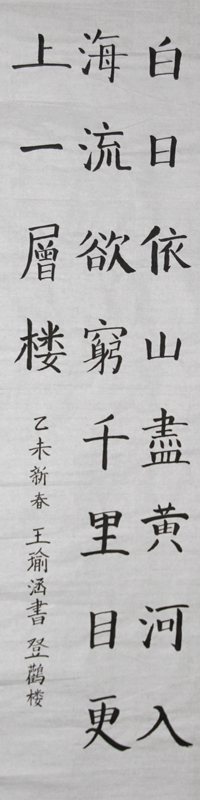 白日依山盡黄河入
海流欲窮千里目更
上一層楼
乙未新春 王瑜涵書 登鸛楼